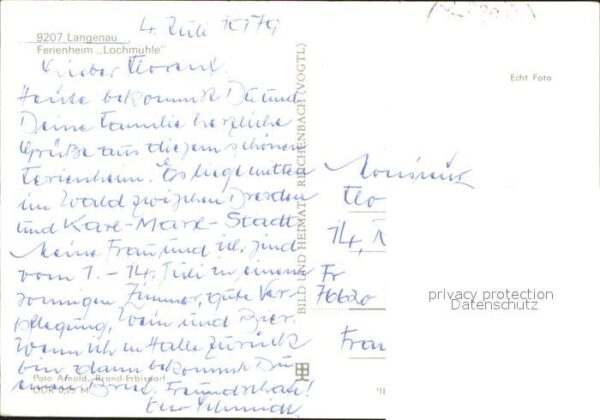 4. Juli 1979
9207 Langenau
Ferienheim „Lochmühle"
Lieber Florent.
Heute bekommst Du und
Deine Familie herzliche
Grüße aus diesem schönen
Ferienheim. Es liegt mitten
im Wald zwischen Dresden
und Karl-Marx-Stadt.
Meine Frau und ich sind
vom 1. - 14. Juli in einem
sonnigen Zimmer, gute Ver-
pflegung, Wein und Bier.
Wenn ich in Halle zurück
bin dann bekommst Du
einen Brief. Freundschaft!
Schmidt
Foto Arnold, Brand-Erbisdorf
0,25 M
BILD UND HEIMAT REICHENBACH (VOGTL)
Echt Foto
Monsieur
Flo
14,
Fr
76620
Fran
privacy protection
Datenschutz